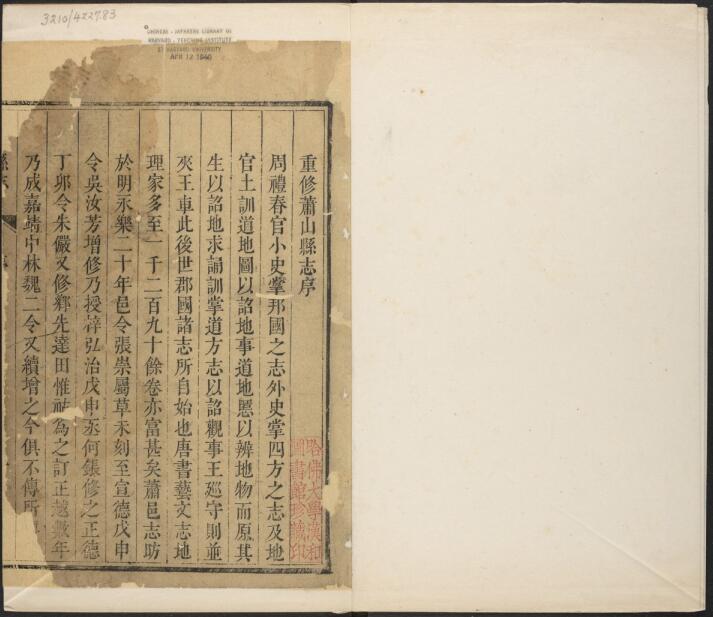 3210/4227.83
CHINESE - JAPANESE LIBRARY OF
HARVARD - YENCHING INSTITUTE
AT HARVARD UNIVERSITY
APR 12 1940
重修蕭山縣志序
周禮春官小史掌邦國之志外史掌四方之志及地
官土訓道地圖以詔地事道地慝以辨地物而原其
生以詔地求誦訓掌道方志以詔觀事王廵守則並
夾王車此後世郡國諸志所自始也唐書藝文志地
理家多至一千二百九十餘卷亦富甚矣蕭邑志昉
於明永樂二十年邑令張崇屬草未刻至宣德戊申
令吳汝芳增修乃授梓弘治戊申丞何鋹修之正德
丁卯令朱儼又修鄉先達田惟祜為之訂正越數年
乃成嘉靖中林魏二令又續增之今俱不傳所
哈佛大學漢和
圖書館珍藏印